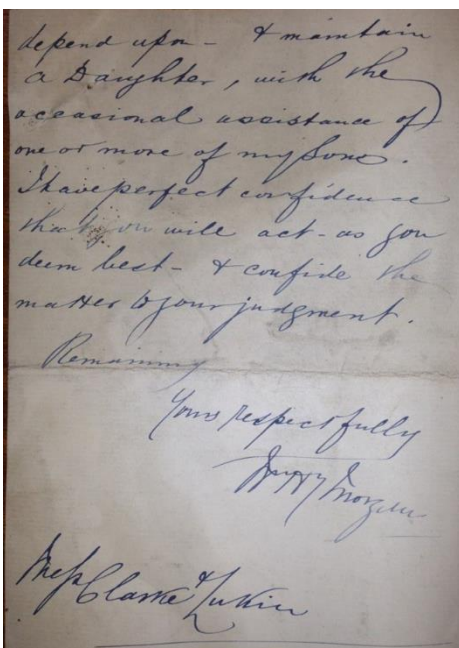 depend upon - & maintain
a Daughter, with the
occasional assistance of
one or more of my Sons.
I have perfect confidence
that you will act - as you
deem best - & confide the
matter to your judgment.
Remaining
Yours respectfully
Morgan
Messrs Clarke & Lukin